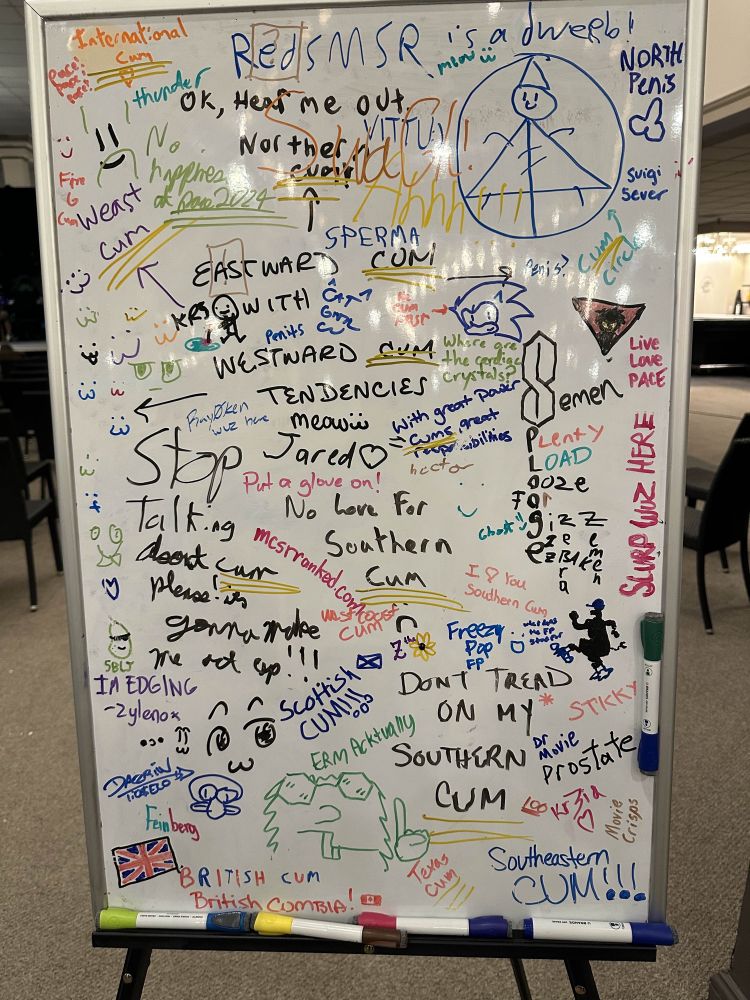 International
Cum
RedSMSR is a dweeb!
meow ii
NORTH
Penis
Pace!
Pace!
Pace!
thunder
OK, Hear me out,
Northern
cum
VITTUN!
Ahhh!!!
No
happies
at Pace 2024
Fire
G
Cum
Weast
Cum
Suigi
Sever
SPERMA
Penis?
Cum
Circle
EASTWARD CUM
WITH
Penits
WESTWARD CUM
Where are
the cerdige
crystals?
Live
Love
PACE
TENDENCIES
meow ii
wuz here
With great power
cums great
responsibilities
hector
Semen
PLENTY
LOAD
OOZE
For
gizz
Stop Jared ♡
Put a glove on!
Talking
about cum
please! its
gonna make
me act up!!!
No Love For
Southern
Cum
mcsrranked.com
Ghost
SLURP WUZ HERE
I ♡ You
Southern Cum
west coast
cum
Freezy
Pop
FP
SBLT
IM EDGING
-Zylenox
Scottish
CUM!!!
DONT TREAD
ON MY
SOUTHERN
CUM
STICKY
Dr
Movie
prostate
ERM Acktually
Feinberg
Movie
Crisps
BRITISH CUM
British CUMBIA!
Texas
Cum
Southeastern
CUM!!!